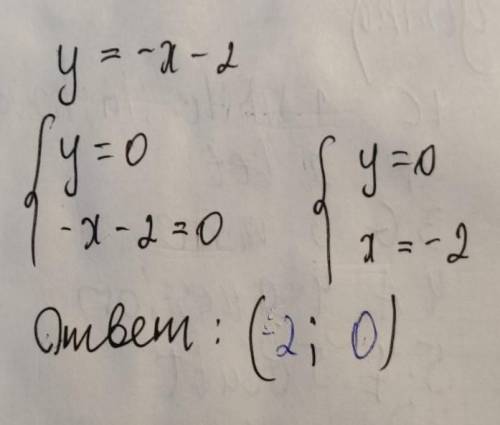 y = -x - 2
{ y = 0
-x - 2 = 0
{ y = 0
x = -2
Ответ: (-2; 0)